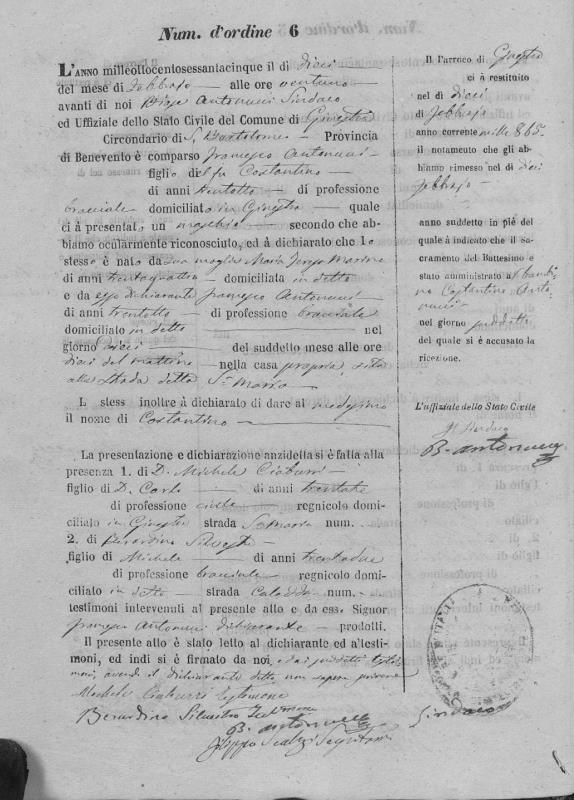 Num. d'ordine 6
L'ANNO milleottocentosessantacinque il di dieci
del mese di Febbrajo alle ore ventuno
avanti di noi Antonucci Sindaco
ed Uffiziale dello Stato Civile del Comune di Ginestra
Circondario di S. Bartolomeo Provincia
di Benevento è comparso Francesco Antonucci
figlio del fu Costantino
di anni trentotto di professione
bracciale domiciliato in Ginestra quale
ci à presentato un maschio secondo che ab-
biamo ocularmente riconosciuto, ed à dichiarato che lo
stesso è nato da sua moglie Maria
di anni trentaquattro domiciliata in detto
e da esso dichiarante Francesco Antonucci
di anni trentotto di professione bracciale
domiciliato in detto nel
giorno dieci del suddetto mese alle ore
dieci del mattino nella casa propria sita
alla Strada detta S. Maria
L stess inoltre à dichiarato di dare al medesimo
il nome di Costantino
La presentazione e dichiarazione anzidetta si è fatta alla
presenza 1. di D. Michele Ciaburri
figlio di D. Carlo di anni
di professione civile regnicolo domi-
ciliato in Ginestra strada S. Maria num.
2. di Berardino Silvestro
figlio di Michele di anni trentadue
di professione bracciale regnicolo domi-
ciliato in detto strada num.
testimoni intervenuti al presente atto e da ess. Signor
Francesco Antonucci dichiarante prodotti.
Il presente atto è stato letto al dichiarante ed a'testi-
moni, ed indi si è firmato da noi, e dai suddetti testi-
moni, avendo il dichiarante detto non sapere scrivere
Michele Ciaburri Testimone
Berardino Silvestro Testimone
B. Antonucci Sindaco
Filippo Segretario
Il Parroco di Ginestra
ci à restituito
nel di dieci
di Febbrajo
anno corrente mille 865
il notamento che gli ab-
biamo rimesso nel di dieci
Febbrajo
anno suddetto in piè del
quale à indicato che il sa-
cramento del Battesimo è
stato amministrato al bambi-
no Costantino Anto-
nucci
nel giorno suddetto
del quale si è accusato la
ricezione.
L'uffiziale dello Stato Civile
Il Sindaco
B. Antonucci